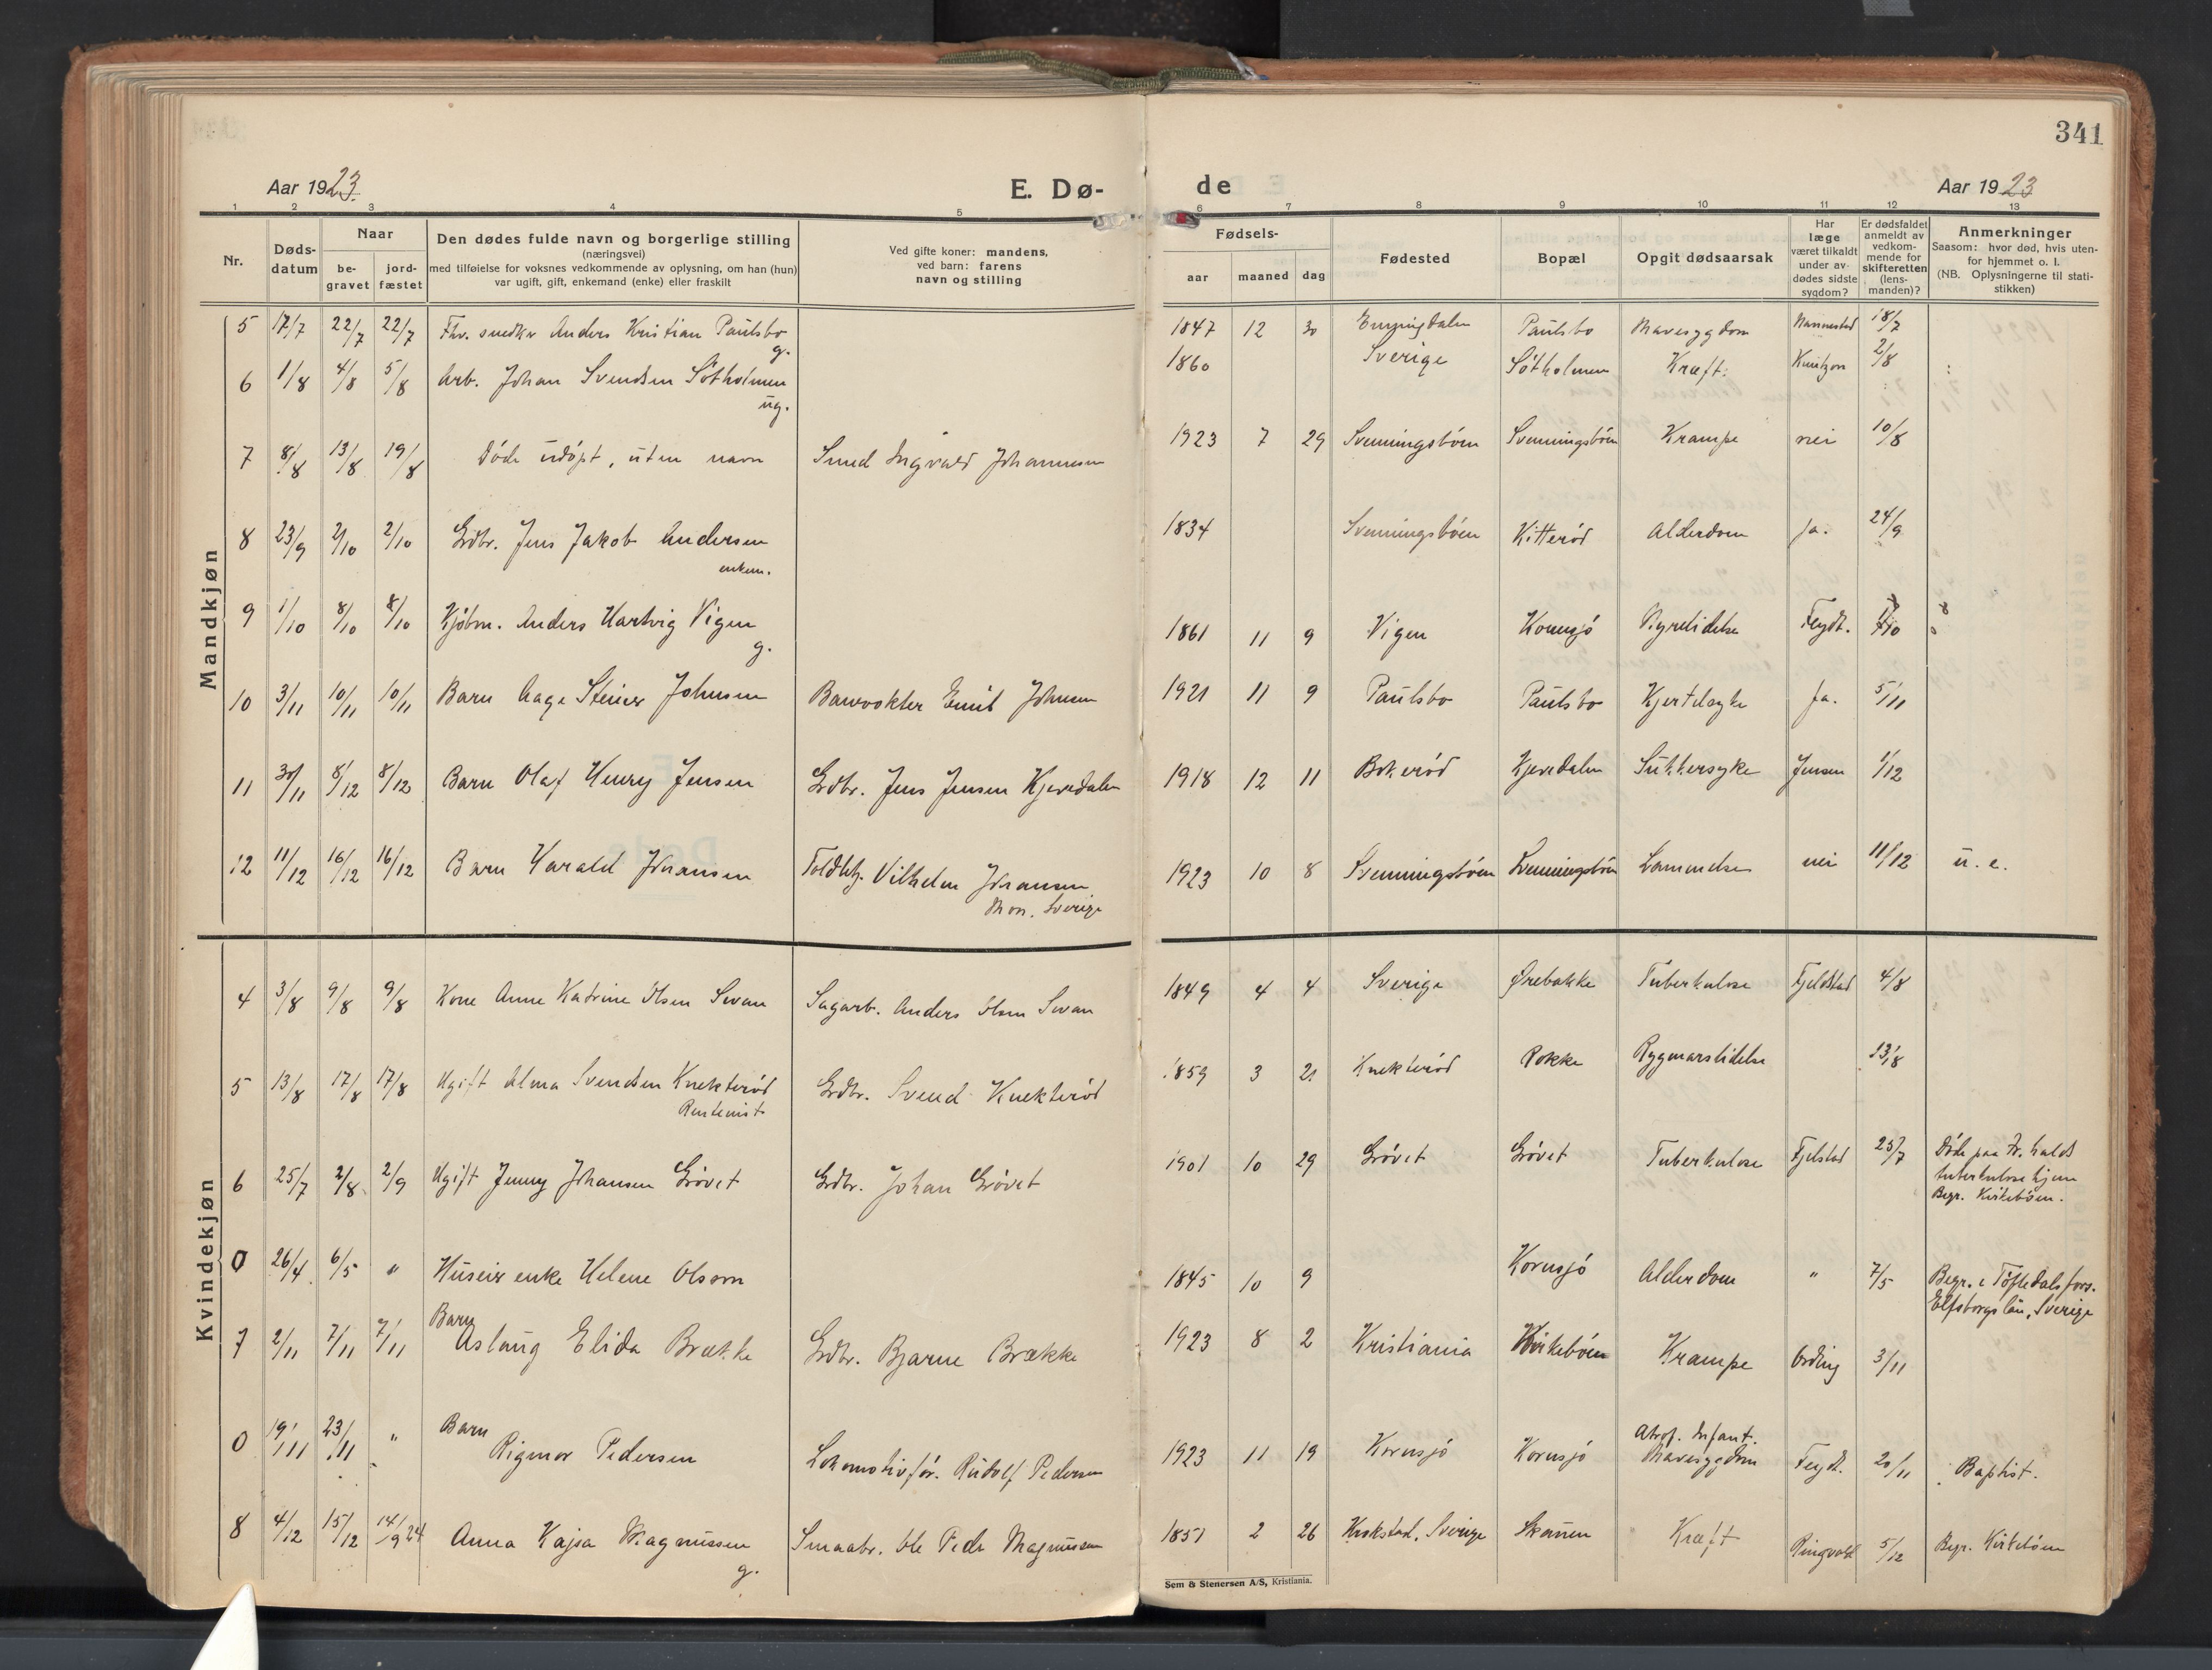 341
Aar 1923.
E. Dø-
de
Aar 1923
1 2 3 4 5 6 7 8 9 10 11 12 13
Nr.
Døds-
datum
Naar
be-
gravet
jord-
fæstet
Den dødes fulde navn og borgerlige stilling
(næringsvei)
med tilføielse for voksnes vedkommende av oplysning, om han (hun)
var ugift, gift, enkemand (enke) eller fraskilt
Ved gifte koner: mandens,
ved barn: farens
navn og stilling
Fødsels-
aar maaned dag
Fødested
Bopæl
Opgit dødsaarsak
Har
læge
været tilkaldt
under av-
dødes sidste
sygdom?
Er dødsfaldet
anmeldt av
vedkom-
mende for
skifteretten
(lens-
manden)?
Anmerkninger
Saasom: hvor død, hvis uten-
for hjemmet o. l.
(NB. Oplysningerne til stati-
stikken)
Mandkjøn
5 17/7 22/7 22/7 Fhv. snedker Anders Kristian Paulsbo 1847 12 30 Enningdalen Paulsbo Mavesygdom 18/7
g.
6 1/8 4/8 5/8 Arb. Johan Svendsen Søtholmen 1860 Sverige Søtholmen Kræft. Knutzon 2/8
ug.
7 8/8 13/8 19/8 Døde udøpt, uten navn Smed Ingvald Johannesen 1923 7 29 Svenningsbøen Svenningsbøen Krampe nei 10/8
8 23/9 2/10 2/10 Grdbr. Jens Jakob Andersen 1834 Svenningsbøen Kitterød Alderdom Ja. 24/9
enkem.
9 1/10 8/10 8/10 Kjøbm. Anders Hartvig Vigen 1861 11 9 Vigen Kornsjø Nyrelidelse Feydt.
g.
10 3/11 10/11 10/11 Barn Aage Steiner Johnsen Banevokter Emil Johnsen 1921 11 9 Paulsbo Paulsbo Kjertelsyke Ja. 5/11
11 30/11 8/12 8/12 Barn Olaf Henry Jensen Grdbr. Jens Jensen Kjeredalen 1918 12 11 Bokerød Kjeredalen Sukkersyke Jensen 1/12
12 11/12 16/12 16/12 Barn Harald Johansen Toldbtj. Vilhelm Johansen 1923 10 8 Svenningsbøen Svenningsbøen Lammelse nei 11/12 u. e.
Mon. Sverige
Kvindekjøn
4 3/8 9/8 9/8 Kone Anne Katrine Olsen Svan Sagarb. Anders Olsen Svan 1849 4 4 Sverige Ørebakke Tuberkulose Fjeldstad 4/8
5 13/8 17/8 17/8 Ugift Alma Svendsen Knekterød Grdbr. Svend Knekterød 1859 3 21 Knekterød Rokke Rygmarslidelse 13/8
Rentenist
6 25/7 2/8 2/9 Ugift Jenny Johansen Grövet Grdbr. Johan Grövet 1901 10 29 Grövet Grövet Tuberkulose Fjelstad 25/7 Døde paa Fr. halds
tuberkulosehjem
Begr. Kirkebøen.
0 26/4 6/5 " Huseier enke Helene Olsson 1845 10 9 Kornsjø Alderdom " 7/5 Begr. i Töftedals fors.
Elfsborgs län, Sverige
Barn
7 2/11 7/11 7/11 Aslaug Elida Brække Grdbr. Bjarne Brække 1923 8 2 Kristiania Kirkebøen Krampe Ording 3/11
Barn
0 19/11 23/11 " Rigmor Pedersen Lokomotivför. Rudolf Pedersen 1923 11 19 Kornsjø Kornsjø Atrof. Infant.
Mavesygdom Feydt. 20/11 Baptist.
8 4/12 15/12 14/9 24 Anna Kajsa Magnussen Smaabr. Ole Peder Magnussen 1851 2 26 Krokstad, Sverige Skauen Kræft Ringvold 5/12 Begr. Kirkebøen
g.
Sem & Stenersen A/S, Kristiania.